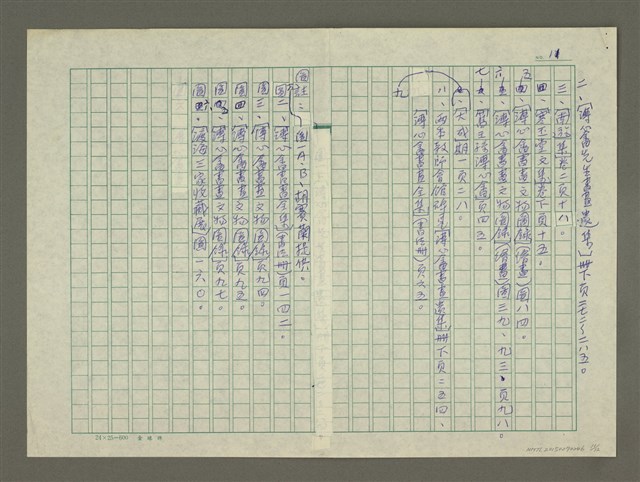 No. 11
二、「溥儒先生書畫遺集」冊下頁二七二~二八五。
三、「南游集」卷二頁十八。
四、「寒玉堂文集」卷下頁十五。
五、「溥心畬書畫文物圖錄」(繪畫)圖八四。
六、「溥心畬書畫文物圖錄」(繪畫)圖三九、九三,頁九八。
七、溥心畬頁四五。
「大成」期一頁二八。
八、「溥心畬書畫遺集」冊下頁二五四、
九
「溥心畬書畫全集」(書法冊)頁六五。
圖註:
圖一A、B、胡賽蘭提供。
圖二、「溥心畬書畫全集」(書法冊)頁一四二。
圖三、「溥心畬書畫文物圖錄」頁九四。
圖四、「溥心畬書畫文物圖錄」頁九五。
圖、「溥心畬書畫文物圖錄」頁九七。
圖六、「渡海三家收藏展」圖一六〇。
24×25=600